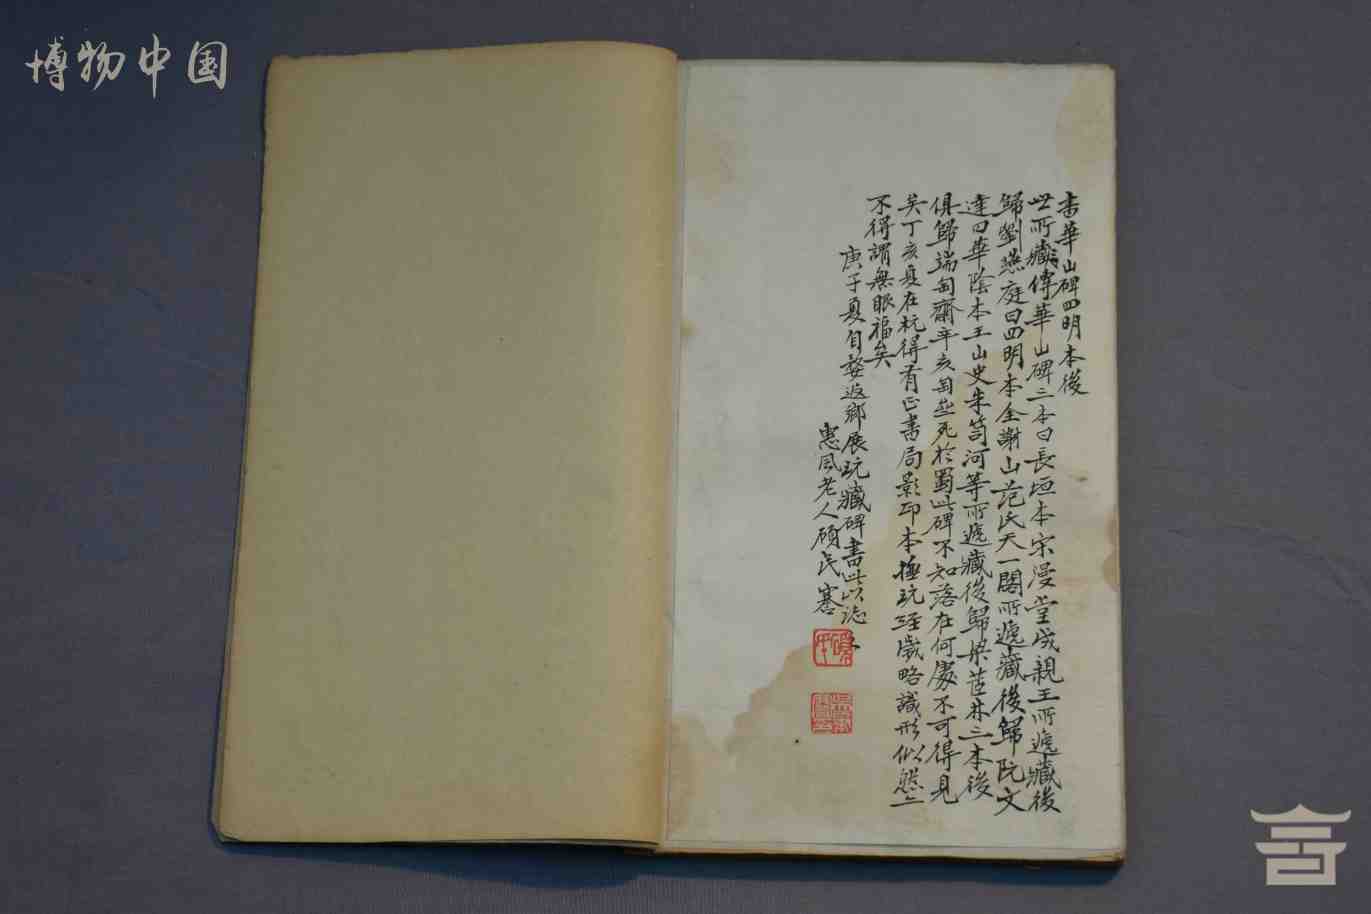 博物中国
书華山碑四明本後
世所藏傳華山碑三本曰長垣本宋漫堂成親王所遞藏後
歸劉燕庭曰四明本全謝山范氏天一閣所遞藏後歸阮文
達曰華陰本王山史朱笥河等所遞藏後歸梁茝林三本後
俱歸端匋齋辛亥匋齋死於蜀此碑不知落在何處不可得見
矣丁亥夏在杭得有正書局影印本摭玩經歲略識形似然亦
不得謂無眼福矣
庚子夏自婺返鄉展玩藏碑書此以誌
惠風老人顧民騫